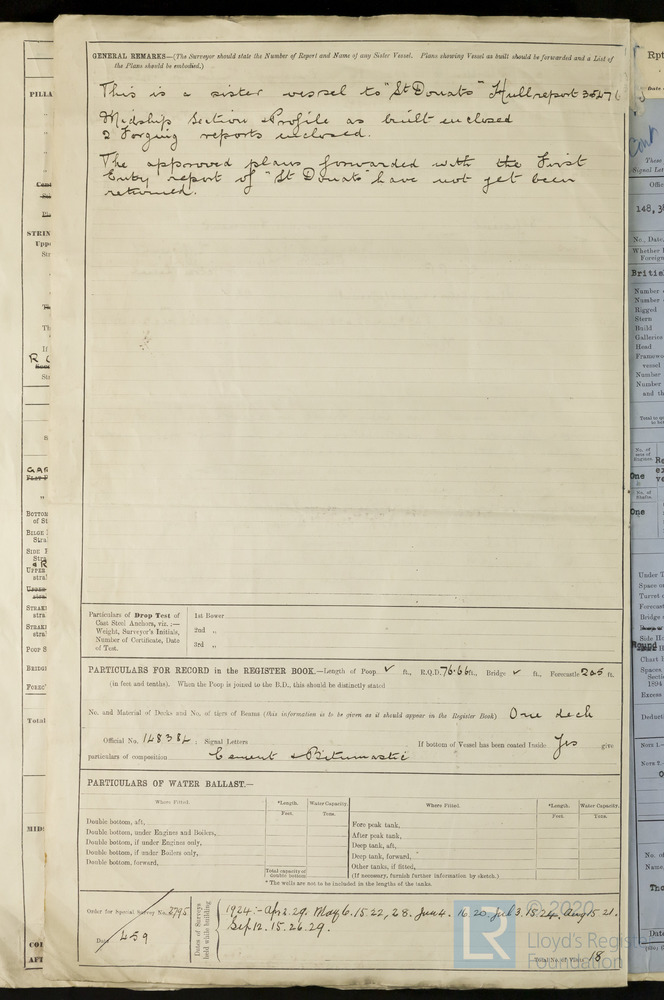 GENERAL REMARKS—(The Surveyor should state the Number of Report and Name of any Sister Vessel. Plans showing Vessel as built should be forwarded and a List of
the Plans should be embodied.)
This is a sister vessel to "St Donats" Hull report 35476
Midship Section & Profile as built enclosed
2 Forging reports enclosed.
The approved plans forwarded with the First
Entry report of "St Donats" have not yet been
returned.
Particulars of Drop Test of
Cast Steel Anchors, viz.:—
Weight, Surveyor's Initials,
Number of Certificate, Date
of Test.
1st Bower
2nd „
3rd „
PARTICULARS FOR RECORD in the REGISTER BOOK.—Length of Poop ✓ ft., R.Q.D. 76.66 ft., Bridge ✓ ft., Forecastle 20.5 ft.
(in feet and tenths). When the Poop is joined to the B.D., this should be distinctly stated
No. and Material of Decks and No. of tiers of Beams (this information is to be given as it should appear in the Register Book) One deck
Official No. 148384; Signal Letters If bottom of Vessel has been coated Inside Yes give
particulars of composition Cement & Bitumastic
PARTICULARS OF WATER BALLAST.—
Where Fitted. *Length. Water Capacity. Where Fitted. *Length. Water Capacity.
Feet. Tons. Feet. Tons.
Double bottom, aft,
Double bottom, under Engines and Boilers,
Double bottom, if under Engines only,
Double bottom, if under Boilers only,
Double bottom, forward,
Total capacity of double bottom
Fore peak tank,
After peak tank,
Deep tank, aft,
Deep tank, forward,
Other tanks, if fitted,
(If necessary, furnish further information by sketch.)
* The wells are not to be included in the lengths of the tanks.
Order for Special Survey No. 2795
Date
Dates of Surveys
held while building
1924:- Apr 2. 29. May 6. 15. 22, 28. Jun 4. 16. 20. Jul 3. 15. 24. Aug 15. 21.
Sep 12. 15. 26. 29.
Total No. of Visits 18
© 2020
LR
Lloyd's Register
Foundation
PILLA
STRIN
Upp
BOTTOM
of St
BILGE
SIDE
UPPER
STRAK
stra
STRAKE
stra
POOP S
BRIDG
FOREC
Total
MID
Rpt
Signal Let
148,38
No., Date,
Whether
Foreign
Britis
Number
Number
Rigged
Stern
Build
Galleries
Head
Framewo
vessel
Number
Number
and th
One
One
Under T
Space o
Turret
Forecast
Bridge
Side H
Round
Chart
Spaces
Secti
1894
Excess
Deduct
NOTE 1.
NOTE 2.
No. of
Name,
Tho
Date